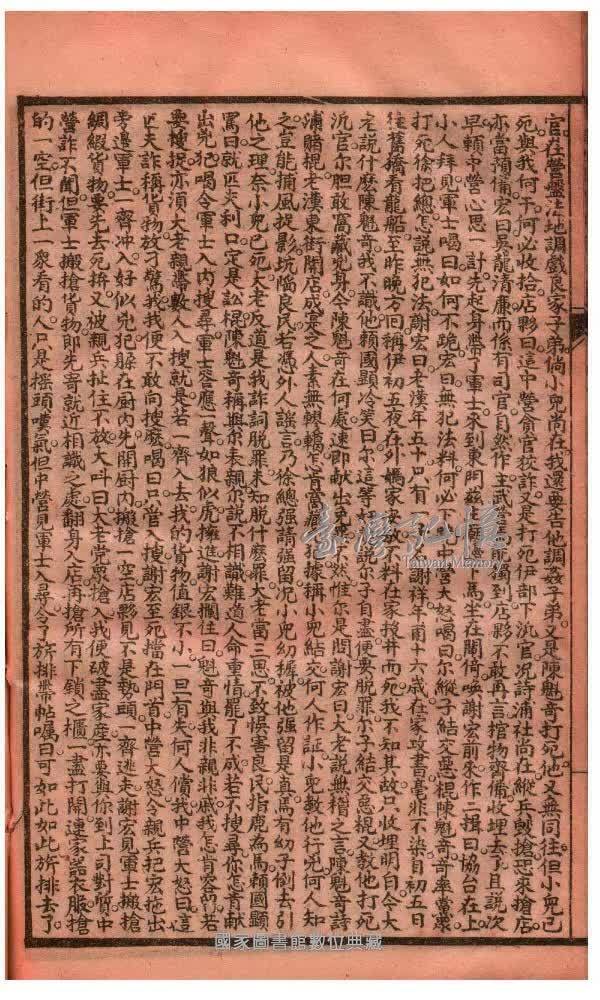 官在營盤法地調戲良家子弟倘小兒尚在我還要告他調姦子弟又是陳魁奇打死他又無同往但小兒已
死與我何干何必收拾店夥曰這中營貪官狡詐又是打死伊部下汛官況詩浦社尚在縱兵毀搶恐來搶店
亦當預備宏曰吳龍清廉而係有司官自然作主武營豈能獨到店夥不敢再言棺物齊備收埋去了且說次
早賴中營心思一計先起身帶了軍士來到東門茲店下馬坐在閣倚喚謝宏前來作二揖曰協台在上
小人拜見軍士喝曰如何不跪宏曰無犯法料何必下跪中營大怒喝曰尔縱子結交惡棍陳魁奇奇率黨眾
打死徐把總怎說無犯法謝宏曰老漢年五十只有一子名謝祥年甫十六歲在家攻書毫非不染目初五日
往舊橋看龍船至昨晚方回稱伊初五夜在外媽家安放不料在家投井而死我不知其故只收埋明白今大
老說什麼陳魁奇我不識他賴國顯冷笑曰尔這等好說尔子自盡便要脫罪尔子結交惡棍又教他打死
汛官尔胆敢窩藏兇身今陳魁奇在何處速即献出免究不然惟尔是問謝宏曰大老說無稽之言陳魁奇詩
浦賭棍老漢東街開店成寔之人素無轇轕怎肯窩藏人犯據稱小兒結交何人作証小兒教他行兇何人知
之豈能捕風捉影坑陷良民若憑外人謠言乃徐總強請強留況小兒幼穉被他強留是真焉有幼子倒去引
他之理奈小兒已死大老反道是我詐詞脫罪未知脫什麼罪大老當三思不致悞害良民指鹿為馬賴國顯
罵曰就匹夫利口定是訟棍陳魁奇稱與尔未親尔說不相識難道人命重情罷了不成若不搜尋你怎肯献
出兇犯喝令軍士入內搜尋軍士答應一聲如狼似虎擁進謝宏攔住曰魁奇與我非親非戚我怎肯容留若
要搜捉亦須大老親帶數人入搜就是若一齊入去我的貨物值銀不小一旦有失何人償我中營大怒曰這
匹夫詐稱貨物放刁驚我我便不敢向搜麼喝曰只管入搜謝宏至死擋在門首中營大怒令親兵把宏拖出
旁邊軍士一齊冲入好似兇犯躲在厨內先開厨內搬搶一空店夥見不是勢頭一齊逃走謝宏見軍士搬搶
綢緞貨物要先去死拚又被親兵扯住不放大叫曰大老當眾搶入我便破盡家産亦要與你到上司對質中
營詐不聞但軍士搬搶貨物即先寄就近相識之處翻身入店再搶所有下鎖之櫃一盡打開連家器衣服搶
的一空但街上一眾看的人只是搖頭嘆氣但中營見軍士入尋令了旂排帶帖囑曰可如此如此旂排去了
臺灣記憶
Taiwan Memory
國家圖書館數位典藏